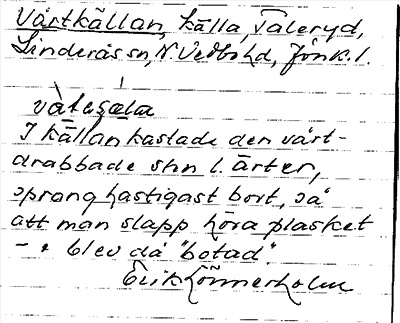 Vårtkällan, källa, Valeryd,
Linderås sn, N. Vedbo hd, Jönk. l.
I källan kastade den vårt-
drabbade shn l. ärter,
sprang hastigast bort, så
att man slapp höra plasket
- o blev då "botad".
Erik Lönnerholm